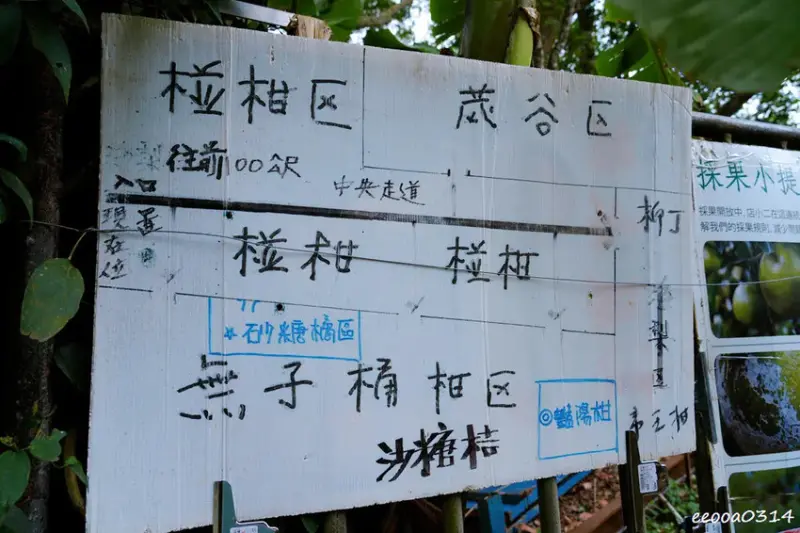 椪柑区
茂谷区
往前00公尺
中央走道
入口
現在位置
柳丁
椪柑
椪柑
☆砂糖橘區
燕子桶柑区
◎豔陽柑
帝王柑
沙糖桔
採果小提
採果開放中,店小二在這邊
解我們的採果規則,減少
eeooa0314